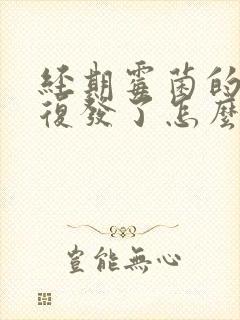 经期霉菌的
復發了怎麼
豈能無心